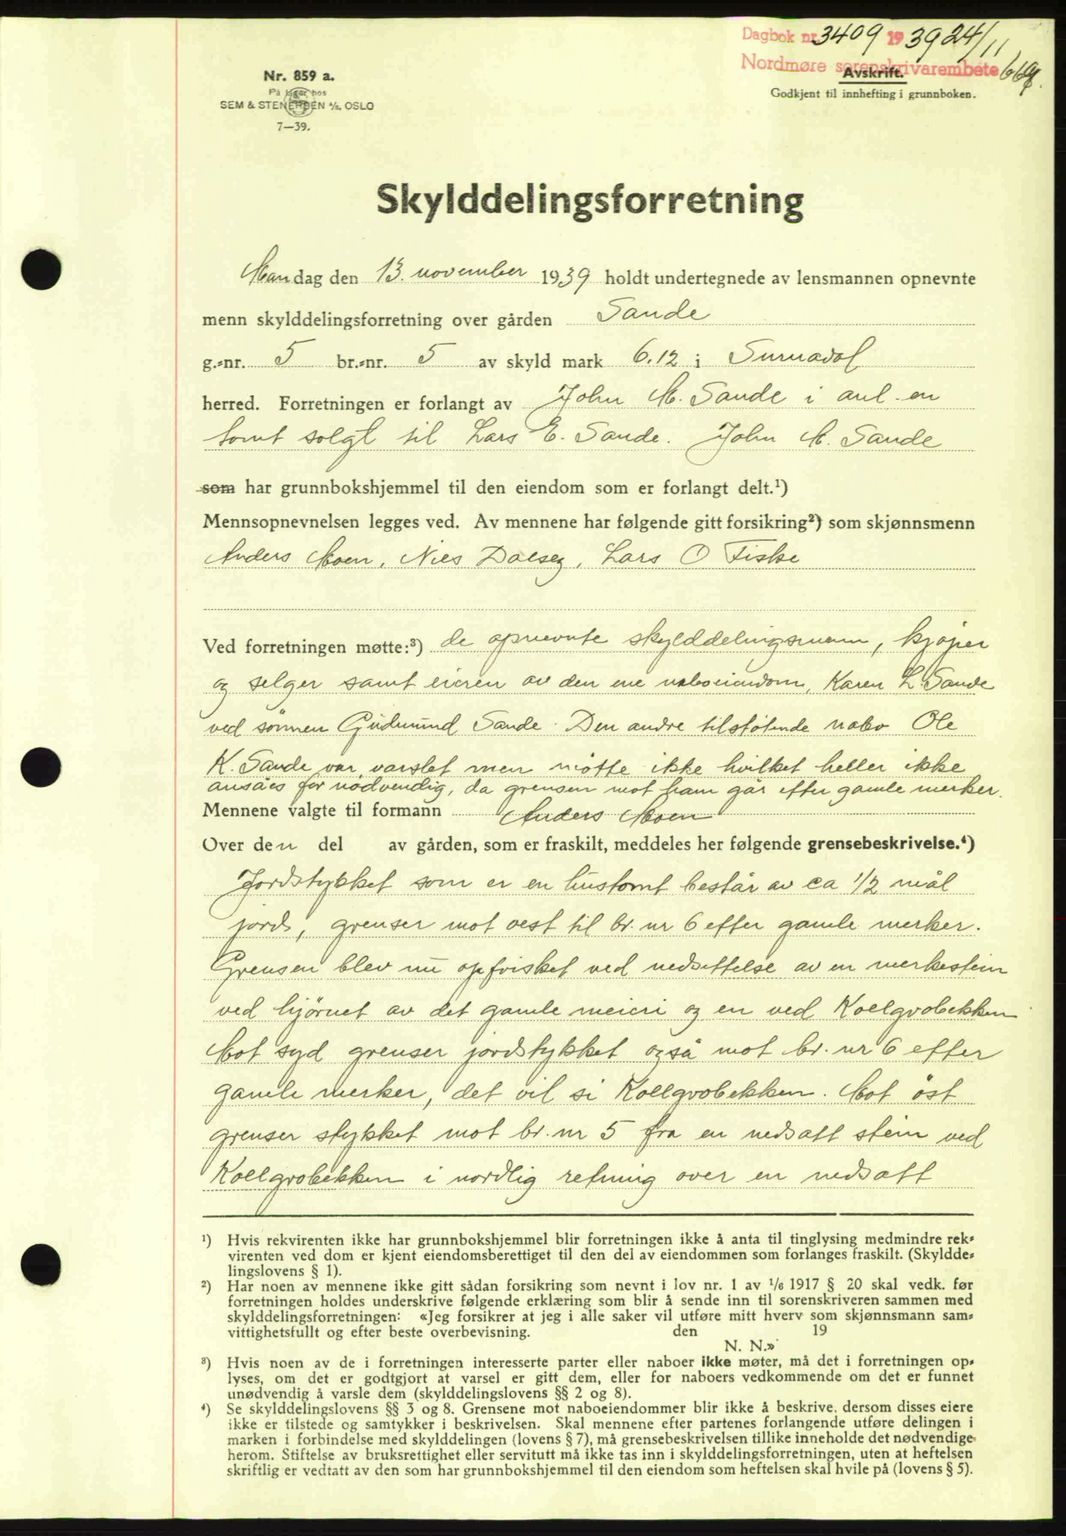 Dagbok nr. 3409 1939 24/11
Nordmøre sorenskrivarembete
Avskrift.
Godkjent til innhefting i grunnboken.
Nr. 859 a.
På lager hos
SEM & STENERSEN A/S, OSLO
7—39.
Skylddelingsforretning
Mandag den 13. november 1939 holdt undertegnede av lensmannen opnevnte
menn skylddelingsforretning over gården Sande
g.-nr. 5 br.-nr. 5 av skyld mark 6.12 i Surnadal
herred. Forretningen er forlangt av John M. Sande i anl. en
tomt solgt til Lars E. Sande. John M. Sande
som har grunnbokshjemmel til den eiendom som er forlangt delt.¹)
Mennsopnevnelsen legges ved. Av mennene har følgende gitt forsikring²) som skjønnsmenn
Anders Moen, Nils Dalseg, Lars O Fiske
Ved forretningen møtte:³) de opnevnte skylddelingsmenn, kjøper
og selger samt eieren av den ene naboeiendom, Karen L. Sande
ved sönnen Gudmund Sande. Den andre tilstötende nabo Ole
K. Sande var varslet men mötte ikke hvilket heller ikke
ansåes for nödvendig, da grensen mot ham går efter gamle merker.
Mennene valgte til formann Anders Moen
Over den del av gården, som er fraskilt, meddeles her følgende grensebeskrivelse.⁴)
Jordstykket som er en hustomt består av ca 1/2 mål
jord, grenser mot vest til br. nr 6 efter gamle merker.
Grensen blev nu opfrisket ved nedsettelse av en merkestein
ved hjörnet av det gamle meieri og en ved Koelgrobekken
Mot syd grenser jordstykket også mot br. nr 6 efter
gamle merker, det vil si Koelgrobekken. Mot öst
grenser stykket mot br. nr 5 fra en nedsatt stein ved
Koelgrobekken i nordlig retning over en nedsatt
¹) Hvis rekvirenten ikke har grunnbokshjemmel blir forretningen ikke å anta til tinglysing medmindre rek-
virenten ved dom er kjent eiendomsberettiget til den del av eiendommen som forlanges fraskilt. (Skyldde-
lingslovens § 1).
²) Har noen av mennene ikke gitt sådan forsikring som nevnt i lov nr. 1 av 1/6 1917 § 20 skal vedk. før
forretningen holdes underskrive følgende erklæring som blir å sende inn til sorenskriveren sammen med
skylddelingsforretningen: «Jeg forsikrer at jeg i alle saker vil utføre mitt hverv som skjønnsmann sam-
vittighetsfullt og efter beste overbevisning. den 19
N. N.»
³) Hvis noen av de i forretningen interesserte parter eller naboer ikke møter, må det i forretningen op-
lyses, om det er godtgjort at varsel er gitt dem, eller for naboers vedkommende om det er funnet
unødvendig å varsle dem (skylddelingslovens §§ 2 og 8).
⁴) Se skylddelingslovens §§ 3 og 8. Grensene mot naboeiendommer blir ikke å beskrive, dersom disses eiere
ikke er tilstede og samtykker i beskrivelsen. Skal mennene efter partenes forlangende utføre delingen i
marken i forbindelse med skylddelingen (lovens § 7), må grensebeskrivelsen tillike inneholde det nødvendige
herom. Stiftelse av bruksrettighet eller servitutt må ikke tas inn i skylddelingsforretningen, uten at heftelsen
skriftlig er vedtatt av den som har grunnbokshjemmel til den eiendom som heftelsen skal hvile på (lovens § 5).